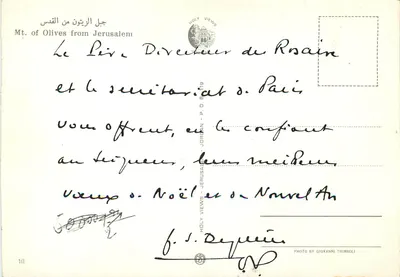 جبل الزيتون من القدس
Mt. of Olives from Jerusalem
HOLY VIEWS
Le Père Directeur du Rosaire
et le secrétariat de Paris
vous offrent, en les confiant
au Seigneur, leurs meilleurs
vœux de Noël et de Nouvel An